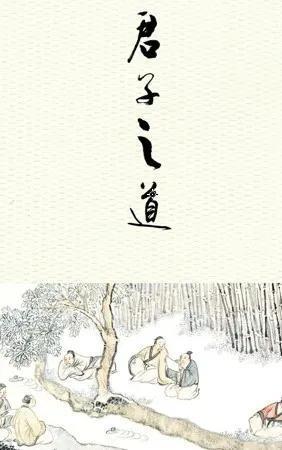 君子之道